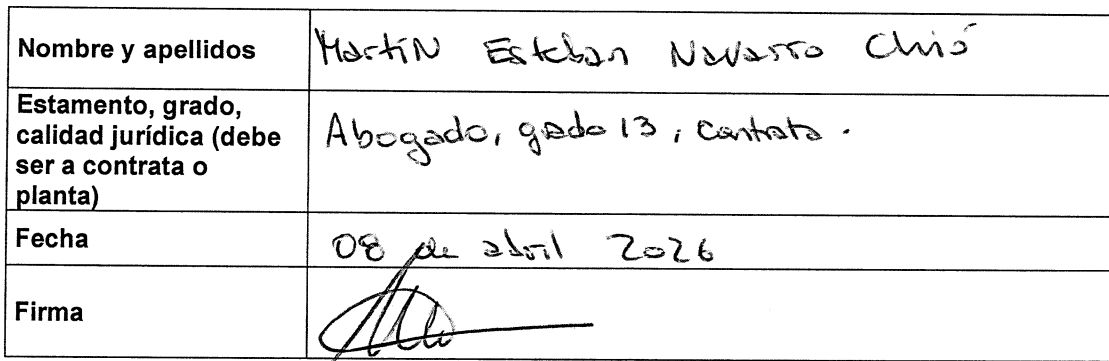 Nombre y apellidos
Martín Esteban Navarro
Estamento, grado,
calidad jurídica (debe
ser a contrata o
planta)
Abogado, grado 13, contrata.
Fecha
08 de abril 2026
Firma